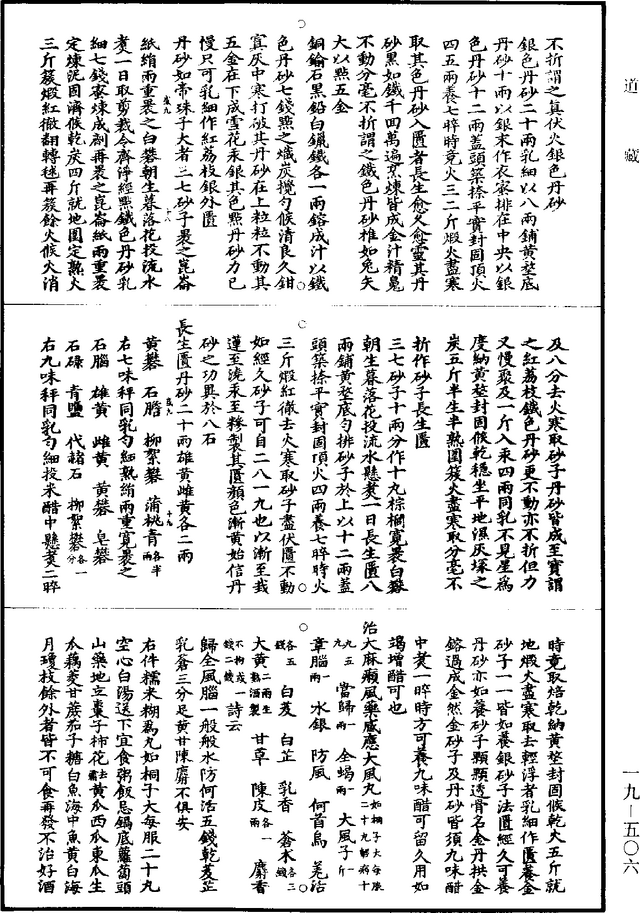 道藏
不折謂之真伏火銀色丹砂
銀色丹砂二十兩乳細以八兩鋪黃埿底
丹砂十兩以銀末作衣家排在中央以銀
色丹砂十二兩蓋頭築捺平實封固頂火
四五兩養七晬時竟火三二斤煅火盡寒
取其色丹砂入匱者長生愈久愈靈其丹
砂黑如鐵千四萬遍烹煉皆成金汁精鬼
不動分毫不折謂之鐵色丹砂椎如兔矢
大以點五金
銅鍮石黑鉛白鑞鐵各一兩鎔成汁以鐵
色丹砂七錢點之熾炭攪勻候清良久鉗
寘灰中寒打破其丹砂在上粒粒不動其
五金在下成雪花汞銀其色點丹砂力已
慢只可乳細作紅荔枝銀外匱
丹砂如帝珠子大者三七砂子裹之崑崙
紙絹兩重裹之白礬朝生暮落花投流水
煑一日取剪栽令齊淨經點鐵色丹砂乳
細七錢蜜煉成劑再裹之崑崙紙兩重裹
定煉泥固濟候乾炭四斤就地圍定熱火
三斤簇煅紅徹翻轉毬再簇餘火候火消
及八分去火寒取砂子丹砂皆成至寶謂
之紅荔枝鐵色丹砂更不動亦不折但力
又慢聚及一斤入汞四兩同乳不見星為
度納黃埿封固候乾穩坐平地濕灰塚之
炭五斤半生半熟圍簇火盡寒取分毫不
折作砂子長生匱
三七砂子十兩分作十九棕櫚寬裹白礬
朝生暮落花投流水懸煑一日長生匱八
兩鋪黃埿底勻排砂子於上以十二兩蓋
頭築捺平實封固頂火四兩養七晬時火
三斤煅紅徹去火寒取砂子盡伏匱不動
如經久砂子可自二八一九也以漸至栽
蓮至澆汞至糝製其匱顏色漸黃始信丹
砂之功異於八石
長生匱丹砂二十兩雄黃雌黃各二兩
黃礬　石膽　柳絮礬　蒲桃青各半兩
右七味秤同乳勻細熟絹兩重寬裹之
石腦　雄黃　雌黃　黃礬　皂礬
石碌　青鹽　代赭石　柳絮礬各一分
右九味秤同乳勻細投米醋中懸煑二晬
時竟取焙乾納黃埿封固候乾火五斤就
地煅火盡寒取去輕浮者乳細作匱養金
砂子一一皆如養銀砂子法匱經久可養
丹砂亦如養砂子顆顆透骨名金丹拱金
鎔過成金然金砂子及丹砂皆須九味醋
中煑一晬時方可養九味醋可留久用如
竭增醋可也
治大麻癩風藥感應大風丸如桐子大每服二十九朝病十九五九
當歸一兩　全蝎一兩　大風子一斤
章腦一兩　水銀　防風　何首烏　羌活
各五錢　白芨　白芷　乳香　蒼术各三錢
大黃二兩生一兩熟酒製　甘草　陳皮各一兩　麝香
不拘或一錢二錢　詩云
歸全風腦一般般水防何活五錢乾芨芷
乳蒼三分足黃甘陳麝不俱安
右件糯米糊為丸如桐子大每服二十丸
空心白湯送下宜食粥飯忌鍋底蘿蔔頭
山藥地立棗子柿花去霜黃瓜西瓜東瓜生
瓜藕菱甘蔗茄子糖白魚海中魚黃白海
月瓊枝餘外者皆不可食再發不治好酒
一九—五〇六